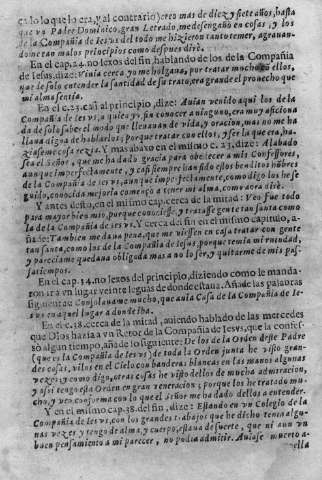 calo lo que lo era, y al contrario) creo mas de diez y siete años, hasta
que vn Padre Dominico, gran Letrado, me desengañò en cosas, y los
de la Compañia de Iesus del todo me hizieron tanto temer, agrauan-
dome tan malos principios como despues dirè.
En el cap. 24. no lexos del fin, hablando de los de la Compañia
de Iesus, dize: Vinia cerca, yo me holgaua, por tratar mucho ellos,
que de solo entender la santidad de su trato, era grande el prouecho que
mi alma sentia.
En el c. 23. casi al principio, dize: Auian venido aqui los de la
Compañia de Iesus, a quien yo sin conocer a ninguno, era muy aficiona
da de solo saber el modo que lleuauan de vida, y oracion, mas no me ha
llaua digna de hablarlos, porque tratar con ellos, y ser la que era, ha-
ziaseme cosa rezia. Y mas abaxo en el mismo c. 23, dize: Alabado
sea el Señor, que me ha dado gracia para obedecer a mis Confessores,
aunque imperfectamente, y casi siempre han sido estos benditos hōbres
de la Compañia de Iesus, aunque imperfectamente, como digo los he se
guido, conocida mejoria començò a tener mi alma, como aora dirè.
Y antes desto, en el mismo cap. cerca de la mitad: Veo fue todo
para mayor bien mio, porque conociesse, y tratasse gente tan santa como
la de la Compañia de Iesus. Y cerca del fin en el mismo capitulo, a-
ñade: Tambien me daua pena, que me viessen en casa tratar con gente
tan santa, como los de la Compañia de Iesus, porque temia mi ruindad,
y pareciame quedaua obligada mas a no lo ser, y quitarme de mis pas
satiempos.
En el cap. 34. no lexos del principio, diziendo como le manda-
ron ir a vn lugar veinte leguas de donde estaua. Añade las palabras
siguientes: Consolauame mucho, que auia Casa de la Compañia de Ie-
sus en aquel lugar a donde iba.
En el c. 38. cerca de la mitad, auiendo hablado de las mercedes
que Dios hazia a vn Retor de la Compañia de Iesvs, que la confes-
sò algun tiempo, añade lo siguiente: De los de la Orden deste Padre
(que es la Compañia de Iesus) de toda la Orden junta he visto gran-
des cosas, vilos en el Cielo con banderas blancas en las manos algunas
vezes, y como digo, otras cosas he visto dellos de mucha admiracion,
y assi tengo esta Orden en gran veneracion, porque los he tratado mu-
cho, y veo conforma con lo que el Señor me ha dado dellos a entender.
Y en el mismo cap. 38. del fin, dize: Estando en vn Colegio de la
Compañia de Iesus, con los grandes trabajos que he dicho tenia algu-
nas vezes, y tengo de alma, y cuerpo, estaua de suerte, que ni aun vn
buen pensamiento a mi parecer, no podia admitir. Auiase muerto a-
ella